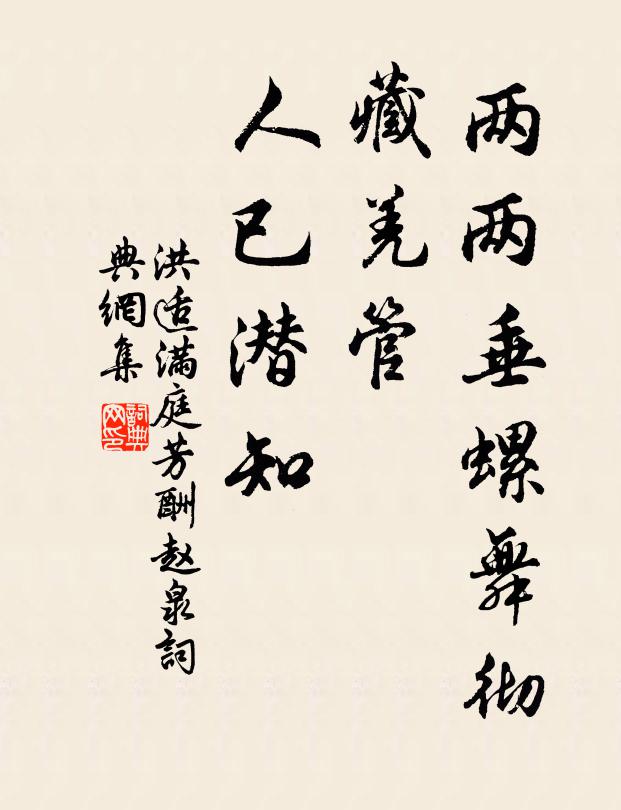 两两垂螺舞彻
藏羌管
人已潜知
洪适满庭芳酬赵泉詞
典網集
詞典
网印